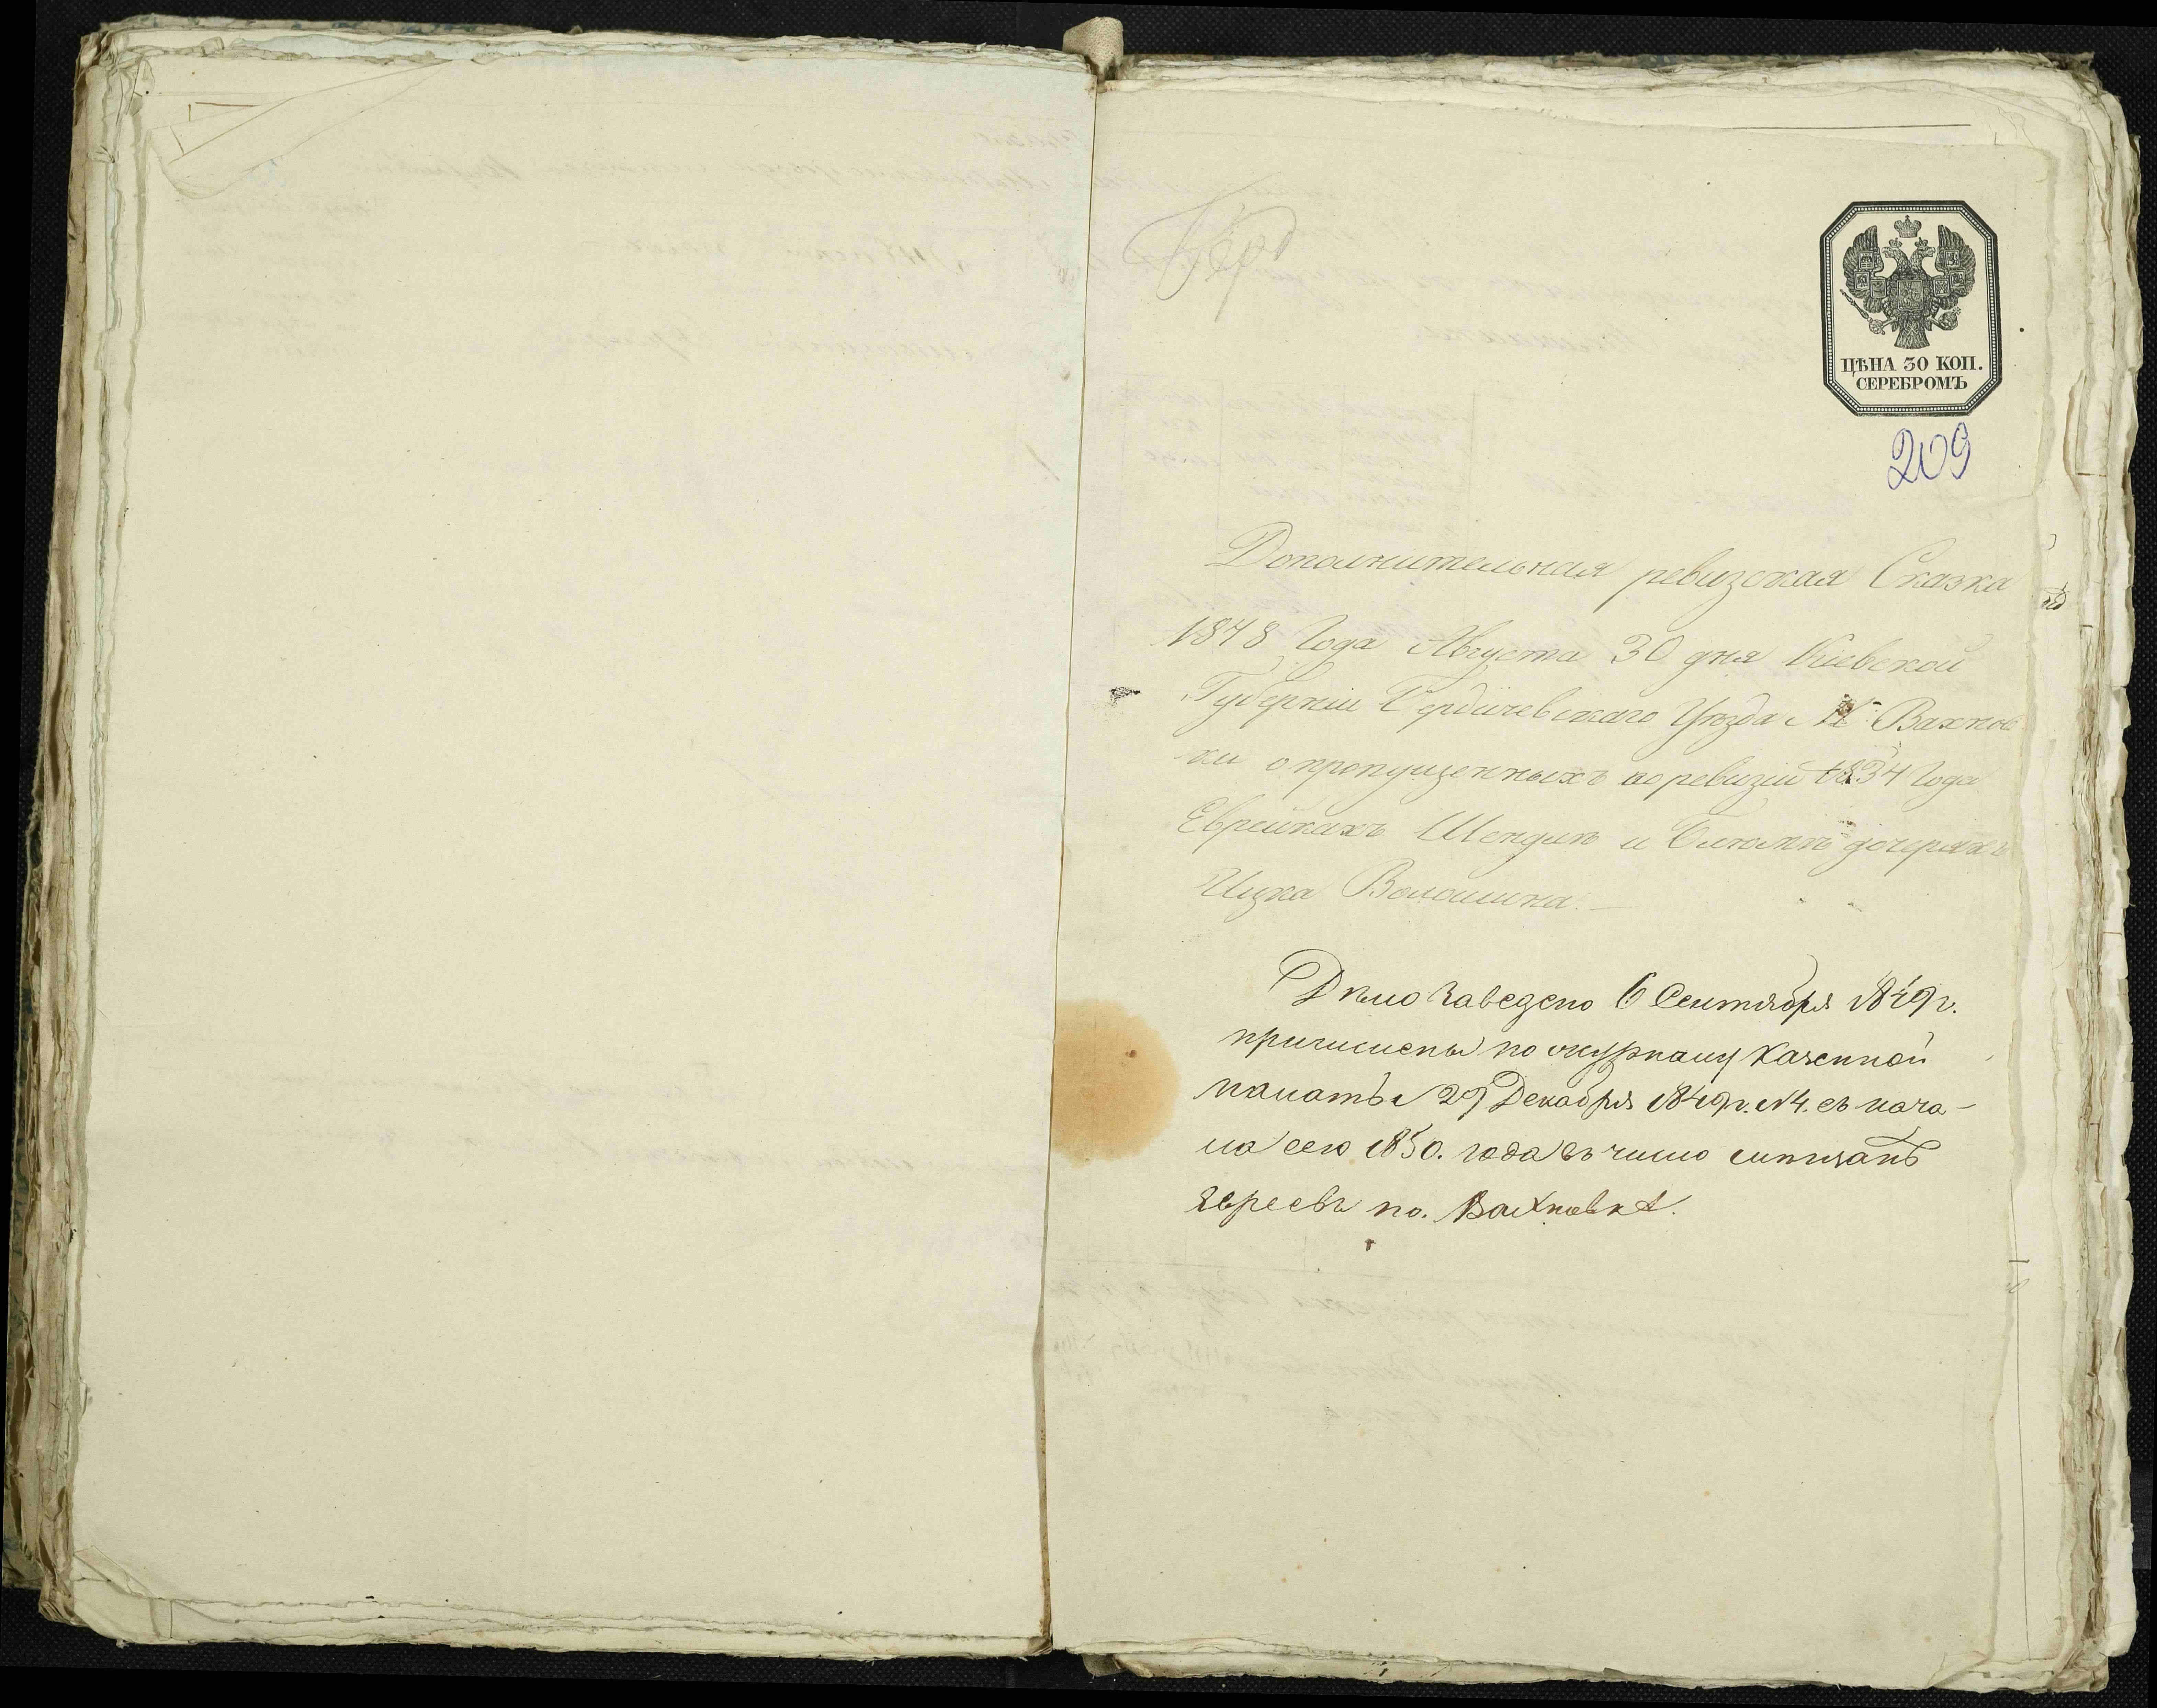 Бер
ЦѢНА 30 КОП.
СЕРЕБРОМЪ
209
Дополнительная ревизская Сказка
1848 Года Августа 30 дня Кіевской
Губерніи Бердичевскаго Уѣзда М. Вахнов
ки о пропущенныхъ по ревизіи 1834 Года
Еврейкахъ Шендлѣ и Блюмѣ дочеряхъ
Ицка Волошина. —
Дѣло заведено 6 Сентября 1849 г.
причислены по журналу Казенной
палаты 29 Декабря 1849 г. с нача-
ла сего 1850. года въ число мѣщанъ
Евреевъ по. Вахновкѣ.